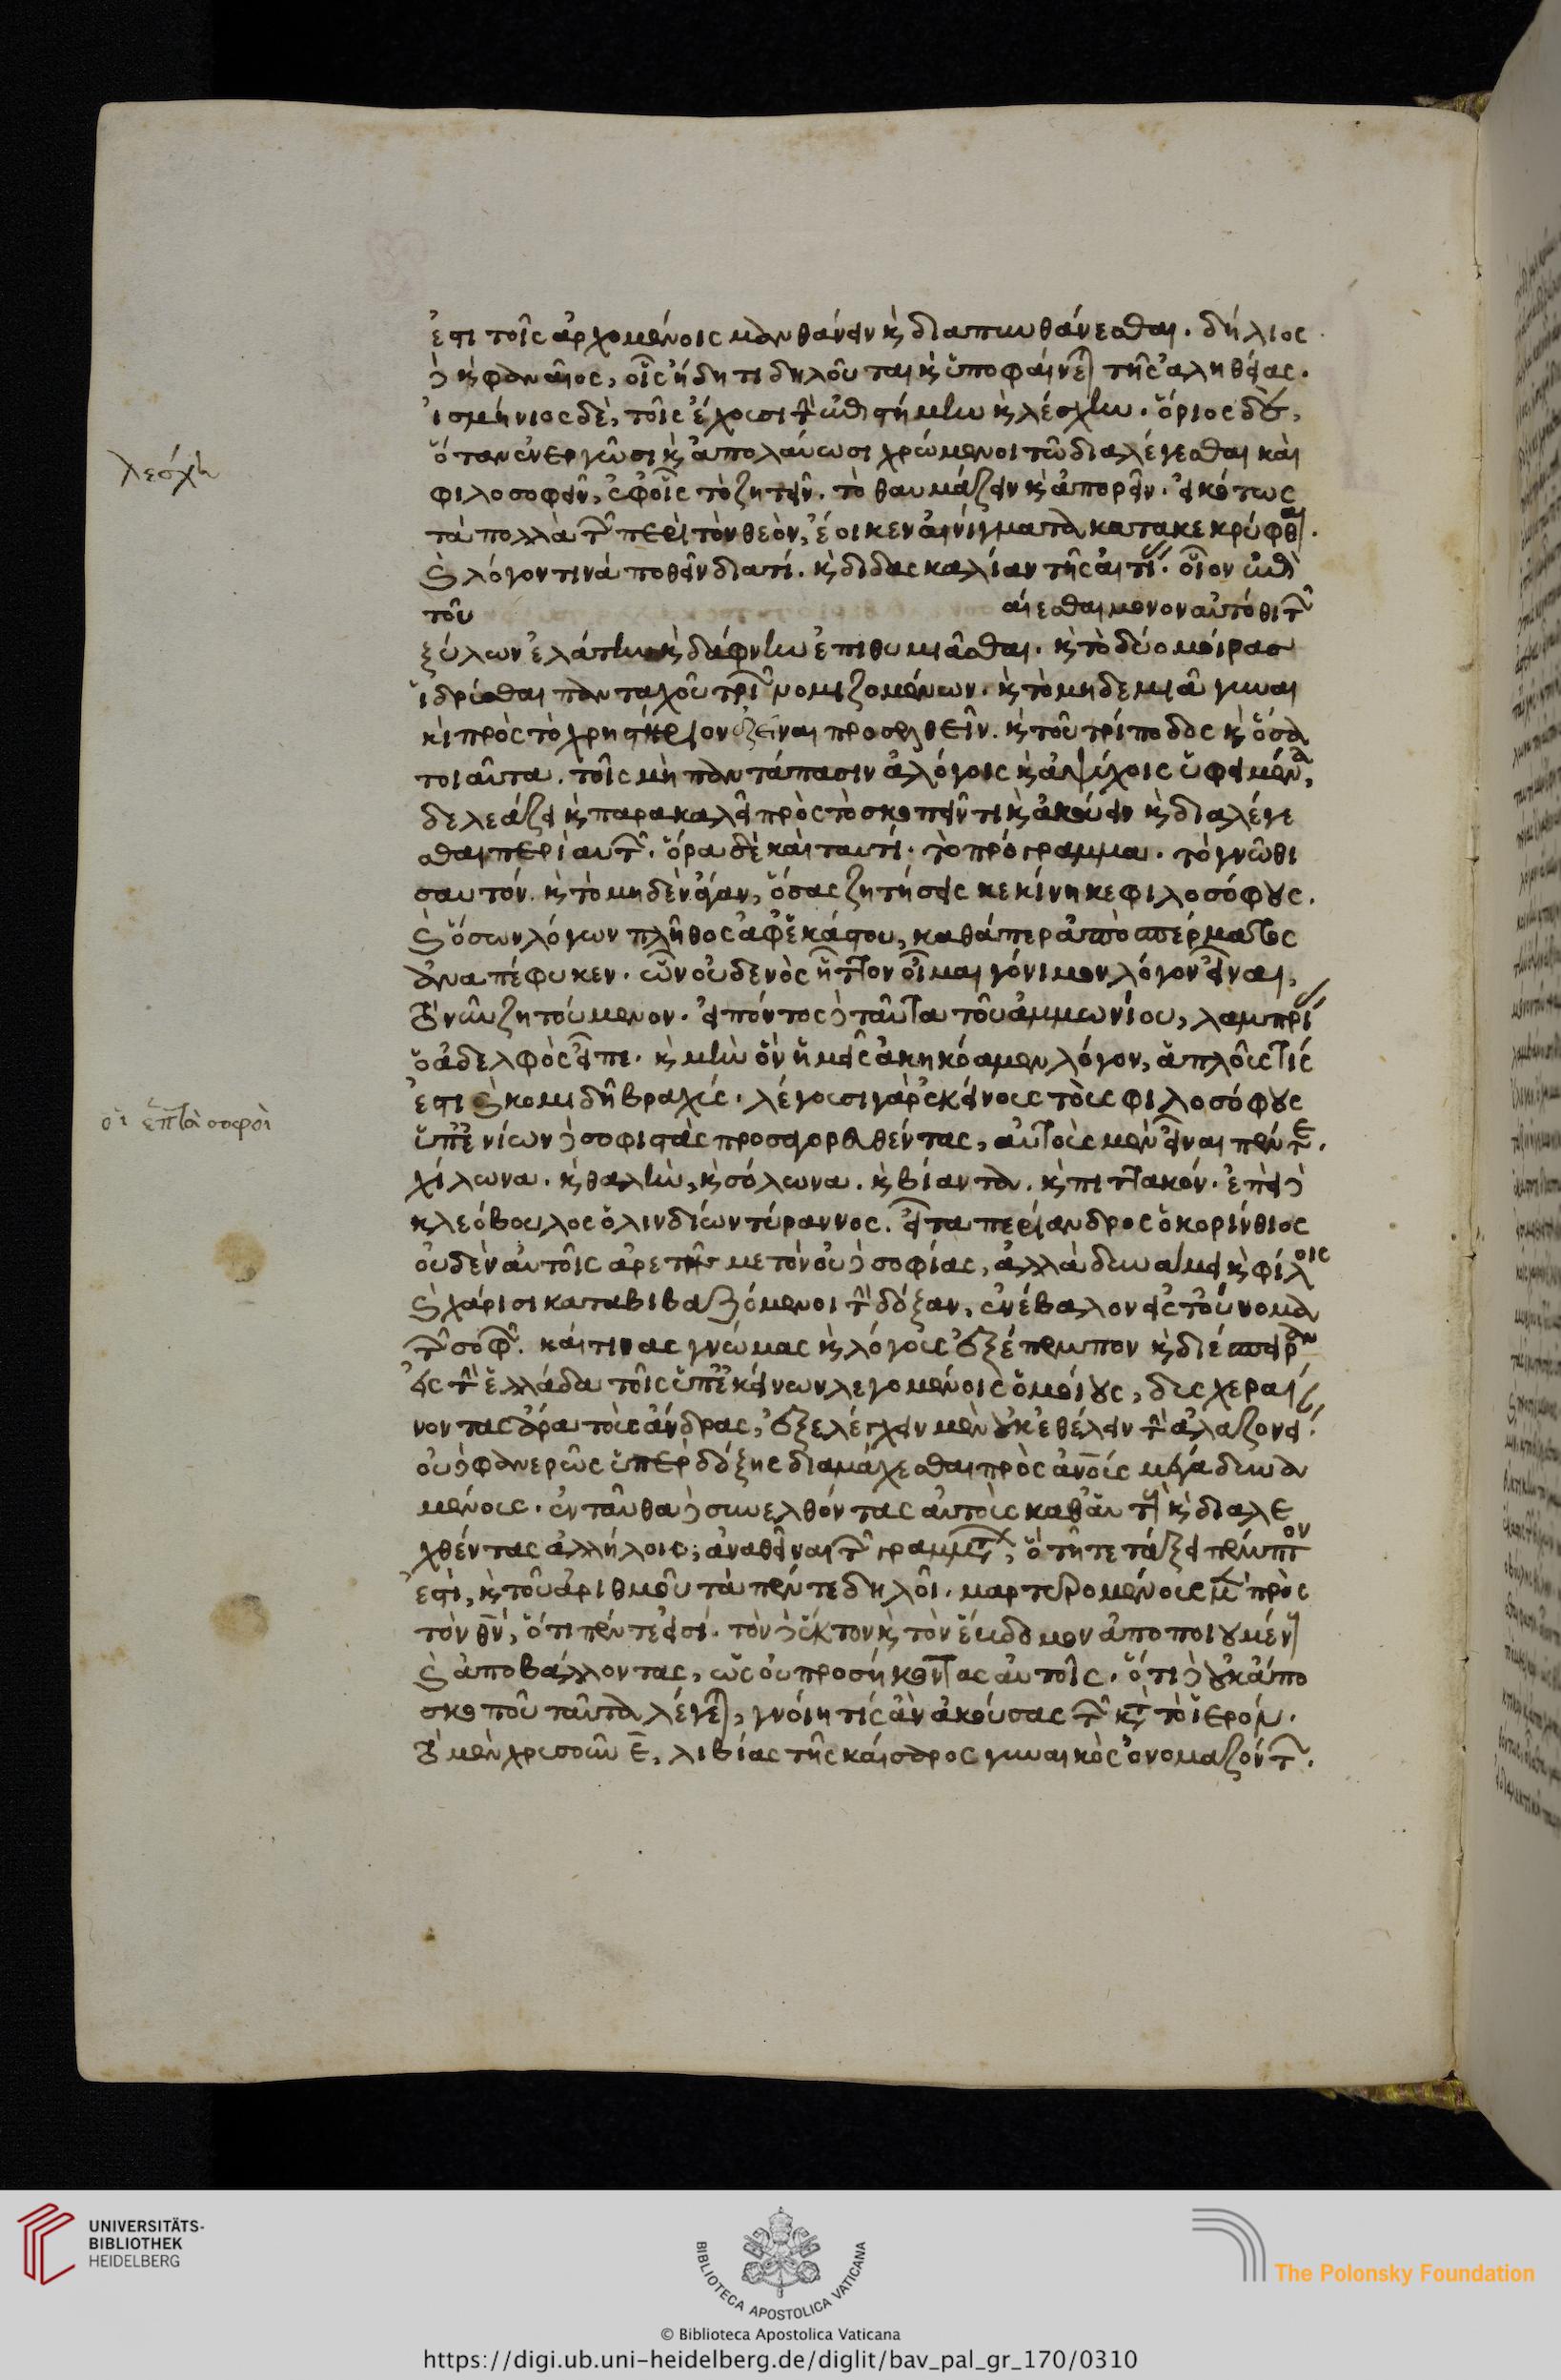 ἐστι τοῖς ἀρχομένοις μανθάνειν καὶ διαπυνθάνεσθαι. δήλιος
δὲ καὶ φαναῖος, οἷς ἤδη τι δηλοῦται καὶ ὑποφαίνεται τῆς ἀληθείας.
ἰσμήνιος δὲ, τοῖς ἔχουσι τὴν ἐπιστήμην καὶ λέσχην. ὅριος δὲ,
ὅταν ἐνεργῶσι καὶ ἀπολαύωσι χρώμενοι τῶ διαλέγεσθαι καὶ
φιλοσοφεῖν, ἐφοῖς τὸ ζητεῖν. τὸ θαυμάζειν καὶ ἀπορεῖν. εἰκότως
τὰ πολλὰ τῶν περὶ τὸν θεὸν, ἔοικεν αἰνίγματα κατακεκρύφθαι.
καὶ λόγον τινὰ ποθεῖν διατί. καὶ διδασκαλίαν τῆς αἰτίας. οἷον ἐπὶ
τοῦ αίεσθαι μόνον αὐτόθι τῶν
ξύλων ἐλάτην καὶ δάφνην ἐπιθυμιᾶσθαι. καὶ τὸ δύο μοίρας
ἱδρύσθαι πανταχοῦ τριῶν νομιζομένων. καὶ τὸ μηδεμιᾶ γυναι
κὶ πρὸς τὸ χρηστήριον ἐξεῖναι προσελθεῖν. καὶ τοῦ τρίποδος καὶ ὅσα
τοιαῦτα. τοῖς μὴ παντάπασιν ἀλόγοις καὶ ἀψύχοις ὑφειμένα,
δελεάζει καὶ παρακαλεῖ πρὸς τὸ σκοπεῖν τι καὶ ἀκούειν καὶ διαλέγε
σθαι περὶ αυτῶν. ὅρα δὲ καὶ ταυτί. τὸ πρόγραμμα. τὸ γνῶθι
σαυτόν. καὶ τὸ μηδὲν ἄγαν, ὅσας ζητήσεις κεκίνηκε φιλοσόφους.
καὶ ὅσων λόγων πλῆθος ἀφ' ἑκάστου, καθάπερ ἀπὸ σπέρματος
ἀναπέφυκεν. ὧν οὐδενὸς ἧττον οἶμαι γόνιμον λόγον εἶναι,
τὸν νῦν ζητούμενον. εἰπόντος δὲ ταῦτα τοῦ ἀμμωνίου, λαμπρίας
ὁ ἀδελφὸς εἶπε. καὶ μὴν ὃν ἡμεῖς ἀκηκόαμεν λόγον, ἁπλοῦς τίς
ἐστι καὶ κομιδῆ βραχύς. λέγουσι γὰρ ἐκείνους τοὺς φιλοσόφους
ὑπ' ἐνίων δὲ σοφιστὰς προσαγορευθέντας, αὐτοὺς μὲν εἶναι πέντε.
χίλωνα. καὶ θαλὴν, καὶ σόλωνα. καὶ βίαντα. καὶ πιττακόν. ἐπεὶ δὲ
κλεόβουλος ὁ λινδίων τύραννος. εἶτα περίανδρος ὁ κορίνθιος
οὐδὲν αὐτοῖς ἀρετῆς μετὸν οὐδὲ σοφίας, ἀλλὰ δυνάμει καὶ φίλοις
καὶ χάρισι καταβιβαζόμενοι τὴν δόξαν, ἐνέβαλον εἰς τοὔνομα
τῶν σοφῶν. καί τινας γνώμας καὶ λόγους ἐξέπεμπον καὶ διέσπειραν
εἰς τὴν ἑλλάδα τοῖς ὑπ' ἐκείνων λεγομένοις ὁμοίους, δυσχεραί
νοντας ἄρα τοὺς ἄνδρας, ἐξελέγχειν μὲν οὐκ ἐθέλειν τὴν ἀλαζονεί.
οὐδὲ φανερῶς ὑπὲρ δόξης διαμάχεσθαι πρὸς ἀνοὺς μέγα δυνα
μένους. ἐνταῦθα δὲ συνελθόντας αὐτοὺς καθ' αὑτοὺς καὶ διαλε
χθέντας ἀλλήλοις, ἀναθεῖναι τῶν γραμμάτων, ὃ τῆ τε τάξει πέμπτον
ἐστὶ, καὶ τοῦ ἀριθμοῦ τὰ πέντε δηλοῖ. μαρτυρομένους μὲν πρὸς
τὸν θν, ὅτι πέντε εἰσί. τὸν δὲ ἕκτον καὶ τὸν ἕβδομον ἀποποιουμένους
καὶ ἀποβάλλοντας, ὡς οὐ προσήκοντας αὐτοῖς. ὅτι δὲ οὐκ ἀπὸ
σκοποῦ ταῦτα λέγεται, γνοίη τίς ἂν ἀκούσας τῶν κατὰ τὸ ἱερόν.
τὸ μὲν χρυσοῦν Ε, λιβίας τῆς καίσαρος γυναικὸς ὀνομαζόντων.
λέσχη
οἱ ἑπτὰ σοφοὶ
UNIVERSITÄTS-
BIBLIOTHEK
HEIDELBERG
BIBLIOTECA APOSTOLICA VATICANA
The Polonsky Foundation
© Biblioteca Apostolica Vaticana
https://digi.ub.uni-heidelberg.de/diglit/bav_pal_gr_170/0310